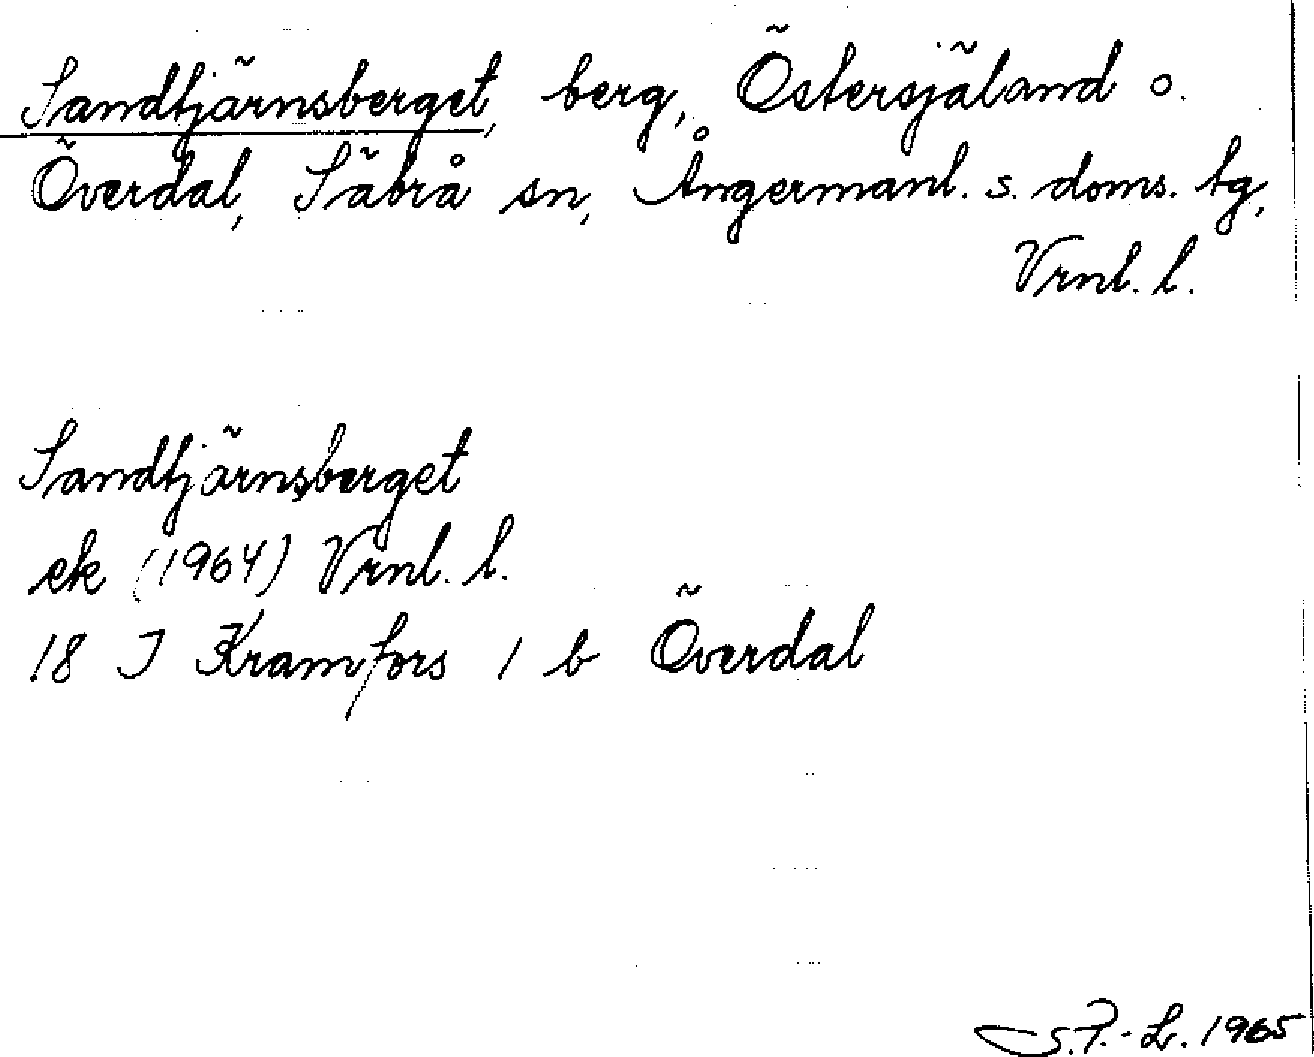 Sandtjärnsberget, berg, Östersjäland o.
Överdal, Säbrå sn, Ångermanl. s. doms. tg,
Vrnl. l.
Sandtjärnsberget
ek (1964) Vrnl. l.
18 J Kramfors 1 b Överdal
S.P.-L. 1965